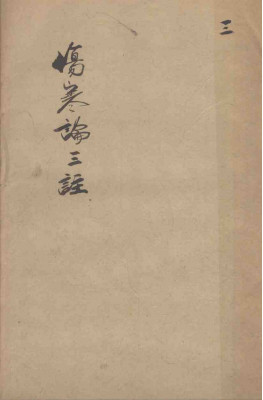 三
傷寒論三註